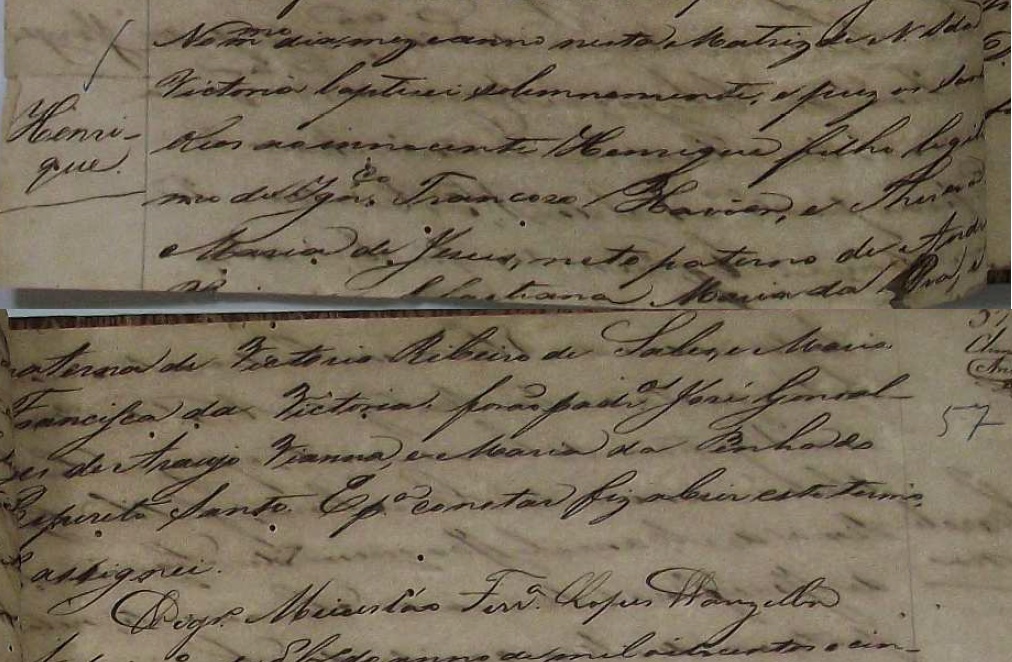 No mmo dia, mez e anno nesta Matriz de N. Sda
Victoria baptizei solemnemente, e puz os San
Henri-
que.
tos ao innocente Henrique filho legiti
mo de Ignco. Francoso Xavier, e There
Maria de Jesus, neto paterno de Andr
Sebastiana Maria da
aterno de Victorio Ribeiro de Salles, e Maria
Francisca da Victoria. forão padros José Gonsal-
ves de Araujo Vianna, e Maria da Penha do
Espirito Santo. E pa. constar fiz abrir este termo
assignei.
57
Vigro. Ferra. Lopes Wanzeller
do anno de mil oitocentos e cin-